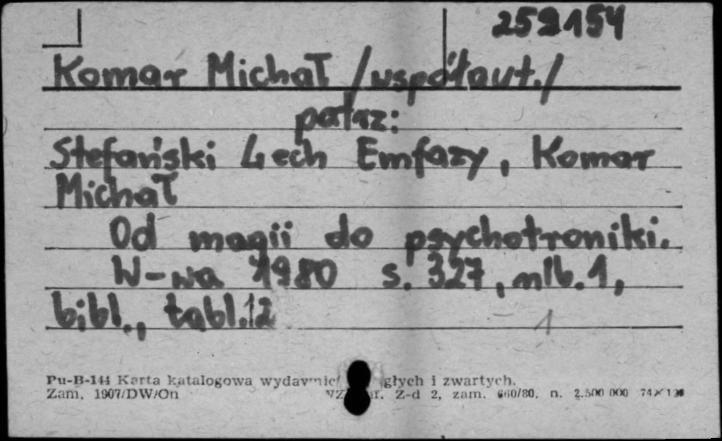 259154
Komar Michał /współaut./
patrz:
Stefański Lech Emfazy, Komar
Michał
Od magii do psychotroniki.
W-wa 1980 s. 327, nlb. 1,
bibl., tabl. 12
1
Pu-B-144 Karta katalogowa wydawnic głych i zwartych.
Zam. 1907/DW/On Z-d 2, zam. 660/80. n. 2.500 000